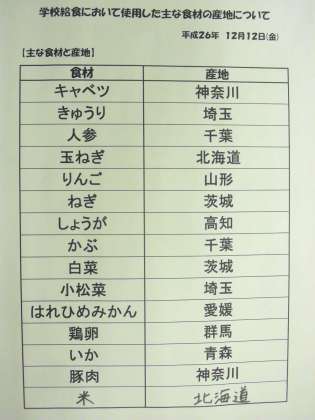 学校給食において使用した主な食材の産地について
平成26年 12月12日(金)
【主な食材と産地】
食材 産地
キャベツ 神奈川
きゅうり 埼玉
人参 千葉
玉ねぎ 北海道
りんご 山形
ねぎ 茨城
しょうが 高知
かぶ 千葉
白菜 茨城
小松菜 埼玉
はれひめみかん 愛媛
鶏卵 群馬
いか 青森
豚肉 神奈川
米 北海道